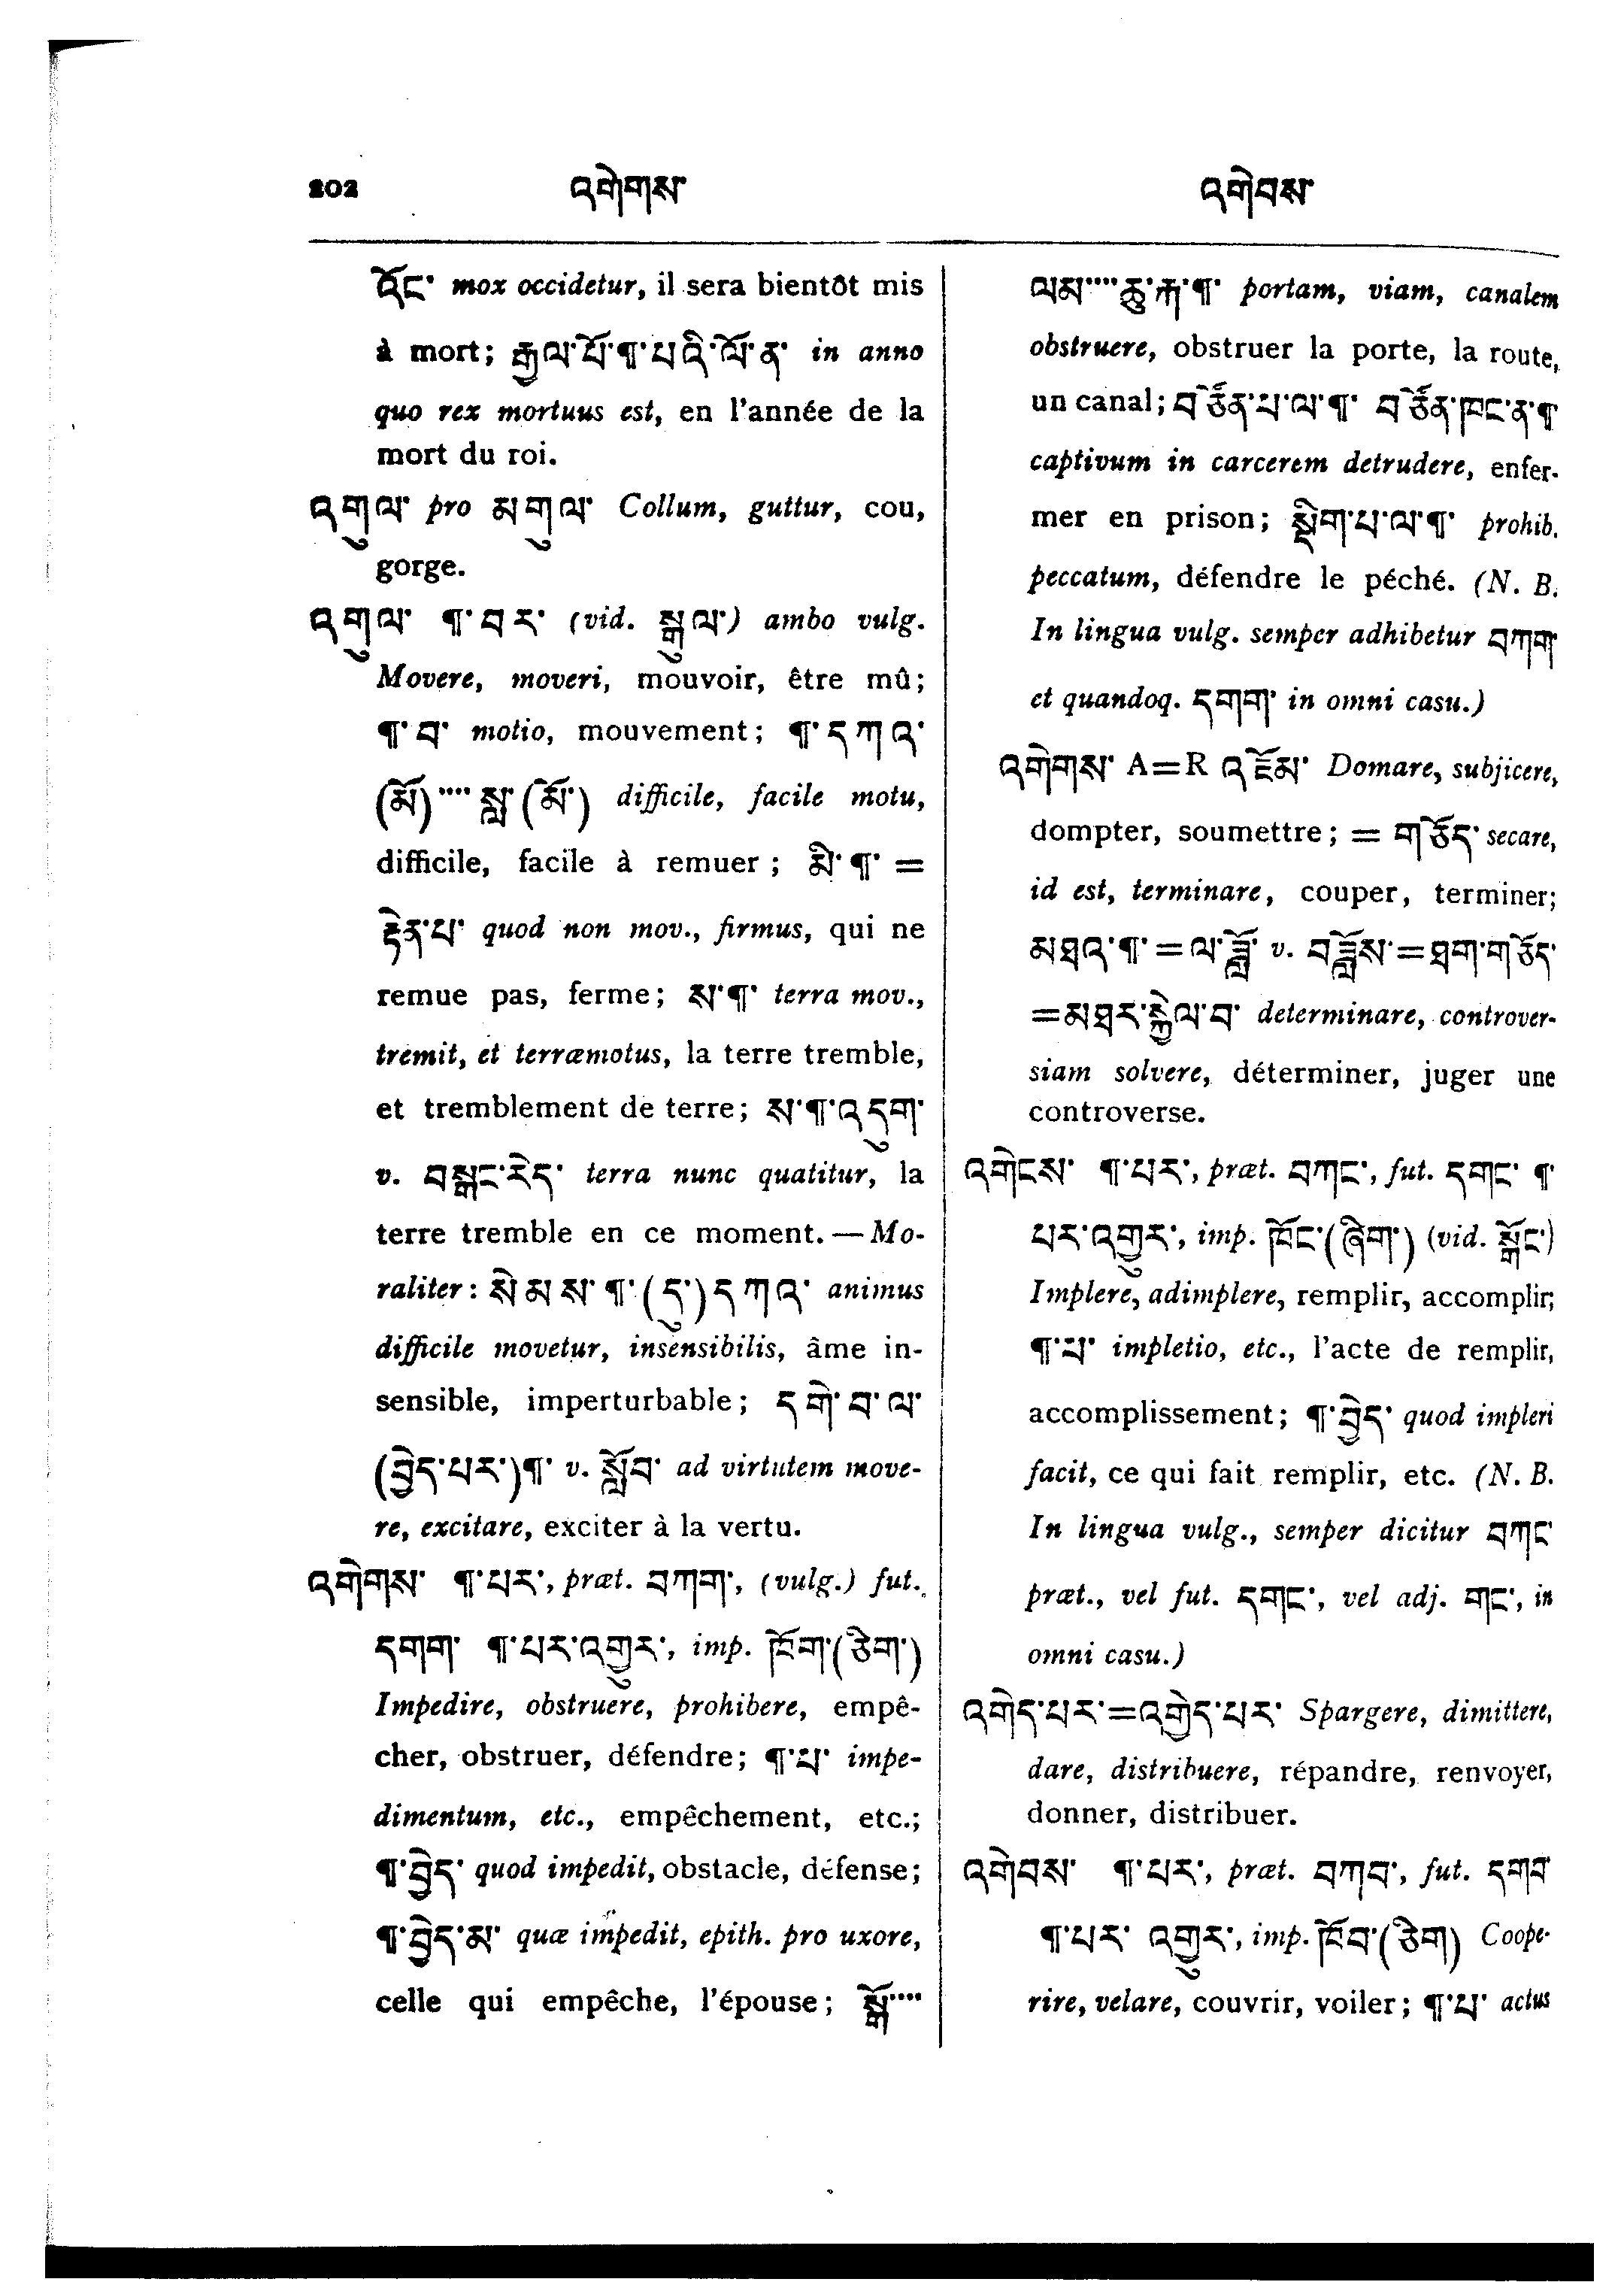 202 འགེགས་ འགེབས་
འོང་ mox occidetur, il sera bientôt mis
à mort; རྒྱལ་པོ་¶་པའི་ལོ་ན་ in anno
quo rex mortuus est, en l'année de la
mort du roi.
འགུལ་ pro མགུལ་ Collum, guttur, cou,
gorge.
འགུལ་ ¶་བར་ (vid. སྒུལ་) ambo vulg.
Movere, moveri, mouvoir, être mû;
¶་བ་ motio, mouvement; ¶་དཀའ་
(མོ)་་་་སླ་(མོ་) difficile, facile motu,
difficile, facile à remuer; མི་¶་ =
རྟེན་པ་ quod non mov., firmus, qui ne
remue pas, ferme; ས་¶་ terra mov.,
tremit, et terræmotus, la terre tremble,
et tremblement de terre; ས་¶་འདུག་
v. བསྒང་རེད་ terra nunc quatitur, la
terre tremble en ce moment. — Mo-
raliter: སེམས་¶་(དུ་)དཀའ་ animus
difficile movetur, insensibilis, âme in-
sensible, imperturbable; དགེ་བ་ལ་
(བྱེད་པར་)¶་ v. སློབ་ ad virtutem move-
re, excitare, exciter à la vertu.
འགེགས་ ¶་པར་, præt. བཀག་, (vulg.) fut.
དགག་ ¶་པར་འགྱུར་, imp. ཁོག་(ཅིག་)
Impedire, obstruere, prohibere, empê-
cher, obstruer, défendre; ¶་པ་ impe-
dimentum, etc., empêchement, etc.;
¶་བྱེད་ quod impedit, obstacle, défense;
¶་བྱེད་མ་ quæ impedit, epith. pro uxore,
celle qui empêche, l'épouse; སྒོ་་་་
ལམ་་་་ཆུ་རྐ་¶་ portam, viam, canalem
obstruere, obstruer la porte, la route,
un canal; བཙོན་པ་ལ་¶་ བཙོན་ཁང་ན་¶
captivum in carcerem detrudere, enfer-
mer en prison; སྡིག་པ་ལ་¶་ prohib.
peccatum, défendre le péché. (N. B.
In lingua vulg. semper adhibetur བཀག
et quandoq. དགག་ in omni casu.)
འགེགས་ A=R འཇོམ་ Domare, subjicere,
dompter, soumettre; = གཅོད་ secare,
id est, terminare, couper, terminer;
མཐའ་¶་=ལ་ཟློ་ v. བཟློས་=ཐག་གཅོད་
=མཐར་སྐྱེལ་བ་ determinare, controver-
siam solvere, déterminer, juger une
controverse.
འགེངས་ ¶་པར་, præt. བཀང་, fut. དགང་ ¶་
པར་འགྱུར་, imp. ཁོང་(ཞིག་) (vid. སྒོང་)
Implere, adimplere, remplir, accomplir;
¶་པ་ impletio, etc., l'acte de remplir,
accomplissement; ¶་བྱེད་ quod impleri
facit, ce qui fait remplir, etc. (N. B.
In lingua vulg., semper dicitur བཀང་
præt., vel fut. དགང་, vel adj. གང་, in
omni casu.)
འགེད་པར་=འགྱེད་པར་ Spargere, dimittere,
dare, distribuere, répandre, renvoyer,
donner, distribuer.
འགེབས་ ¶་པར་, præt. བཀབ་, fut. དགབ
¶་པར་ འགྱུར་, imp. ཁོབ་(ཅིག) Coope-
rire, velare, couvrir, voiler; ¶་པ་ actus